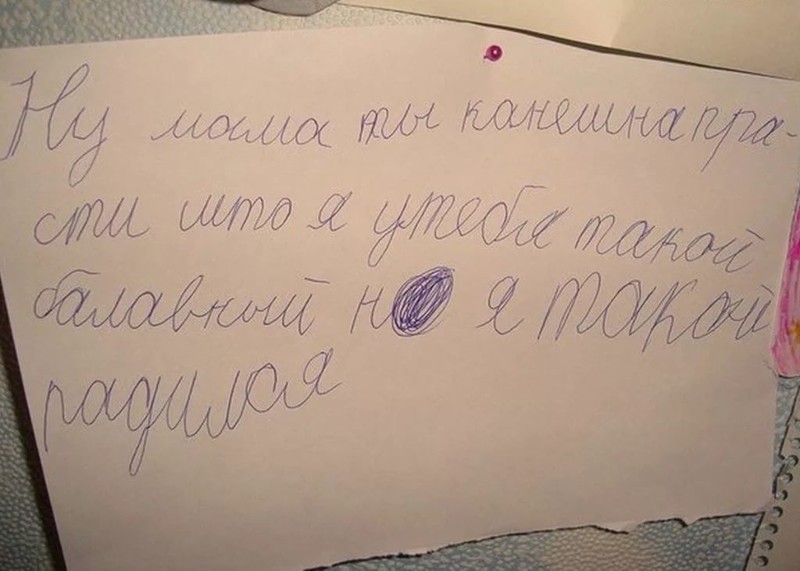 Ну мама ты канешна пра-
сти што я утебя такой
балавный но я такой
радился